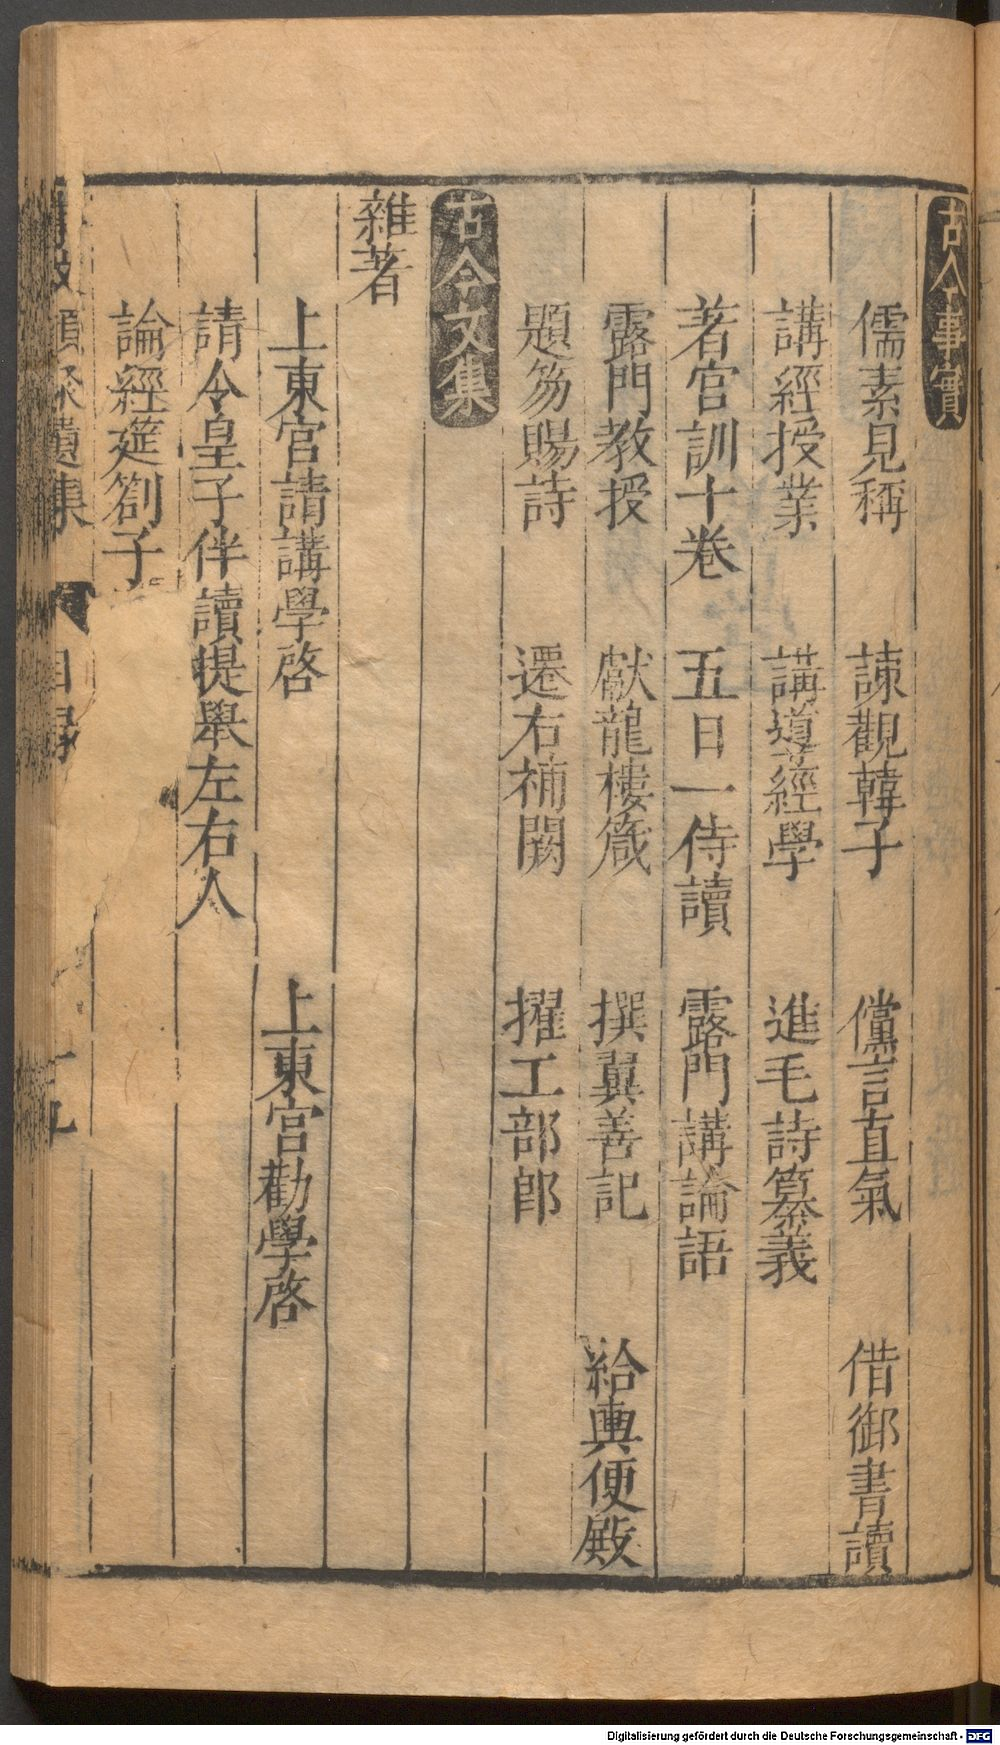 古今事實
儒素見稱　諫觀韓子　儻言直氣　借御書讀
講經授業　講導經學　進毛詩纂義
著宫訓十卷　五日一侍讀　露門講論語
露門教授　獻龍樓箴　撰翼善記　給輿便殿
題笏賜詩　遷右補闕　擢工部郎
古今文集
雜著
上東宫請講學啓　上東宫勸學啓
請令皇子伴讀提舉左右人
論經筵劄子
類聚遺集　目録　十九
Digitalisierung gefördert durch die Deutsche Forschungsgemeinschaft - DFG